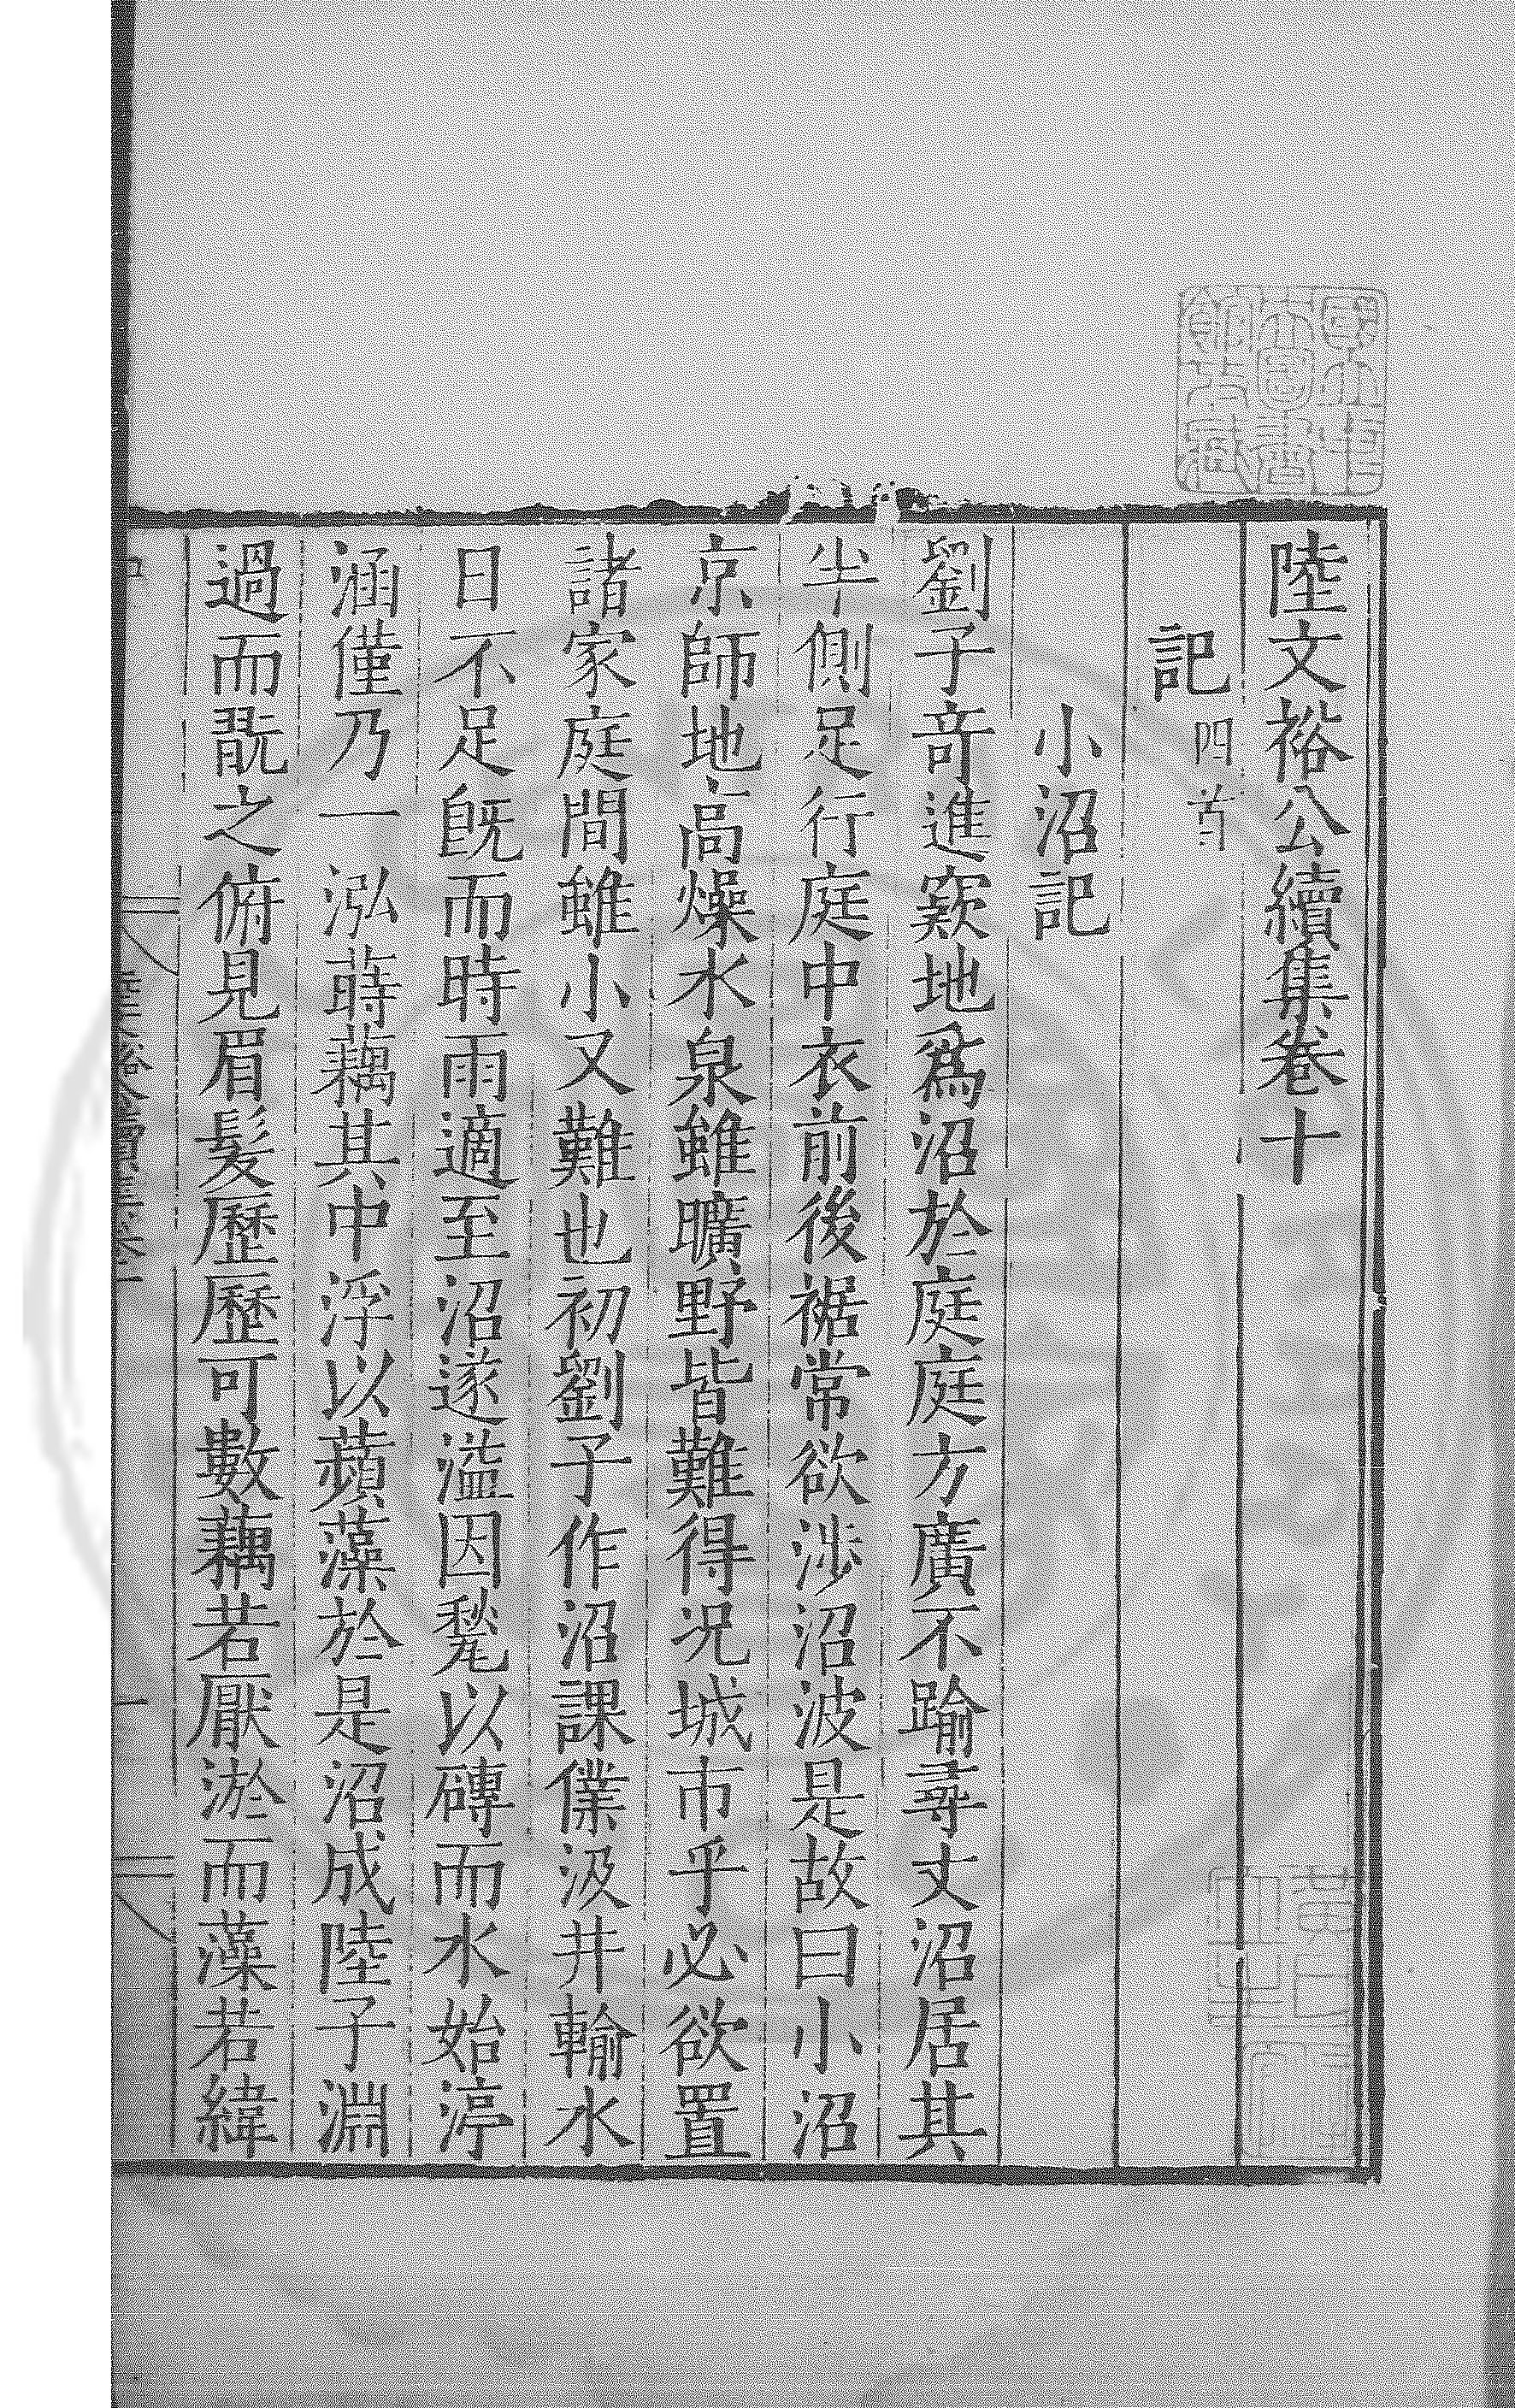 陸文裕公續集卷十
記四首
小沼記
劉子奇進窾地爲沼於庭庭方廣不踰尋丈沼居其
半側足行庭中衣前後裾常欲涉沼波是故曰小沼
京師地高燥水泉雖曠野皆難得况城市乎必欲置
諸家庭間雖小又難也初劉子作沼課僕汲井輸水
日不足旣而時雨適至沼遂溢因甃以磚而水始渟
涵僅乃一泓蒔藕其中浮以蘋藻於是沼成陸子淵
過而翫之俯見眉髮歷歷可數藕若厭淤而藻若緯